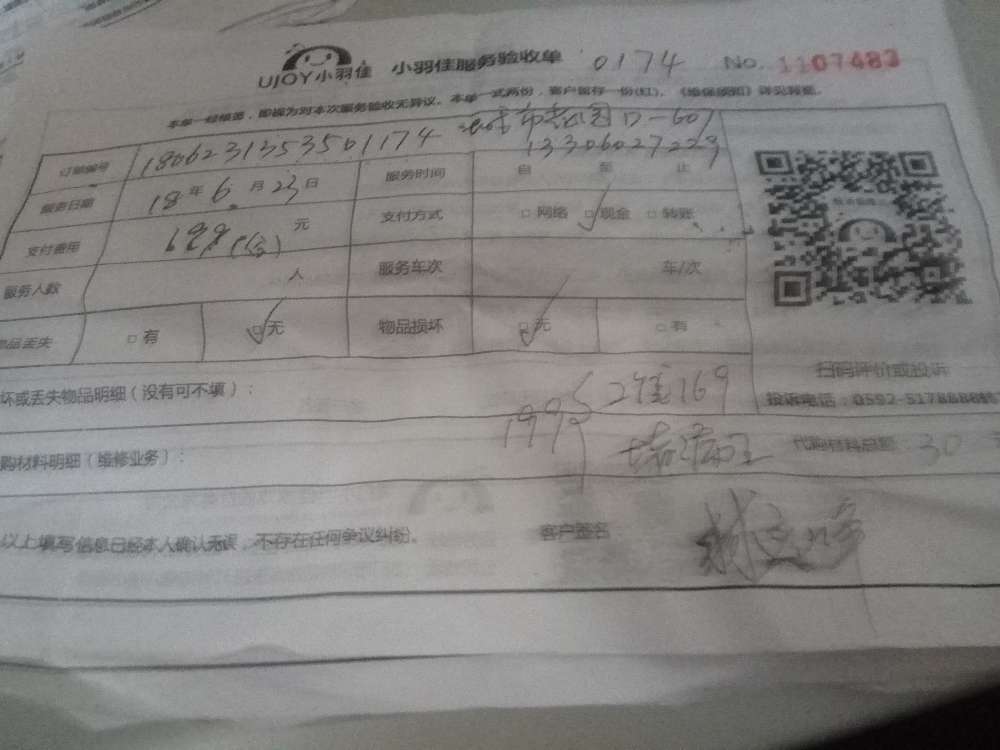 UJOY小羽佳 小羽佳服务验收单 0174 No. 1107483
本单一经签签，即视为对本次服务验收无异议。本单一式两份，客户留存一份(红)。《维保须知》详见背面。
订单编号 180623135350 1174 D-607
13306027229
服务日期 18年6月23日 服务时间 自 至 止
支付费用 199 元 支付方式 □网络 □现金 □转账
服务人数 人 服务车次 车/次
物品丢失 □有 □无 物品损坏 □无 □有
扫码评价或投诉
坏或丢失物品明细（没有可不填）：
投诉电话：0592-5178888转
199 169
购材料明细（维修业务）： 代购材料总额 30
以上填写信息已经本人确认无误，不存在任何争议纠纷。 客户签名